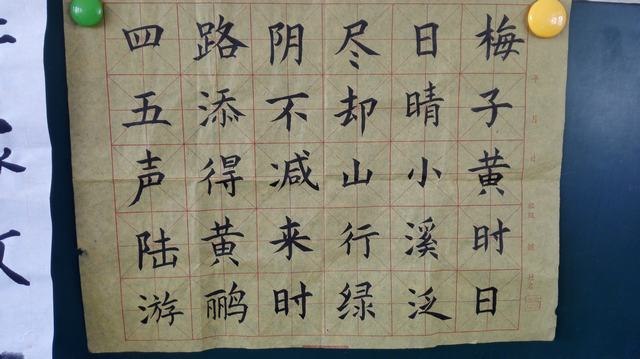 梅子黄时日
日晴小溪泛
尽却山行绿
阴不减来时
路添得黄鹂
四五声陆游